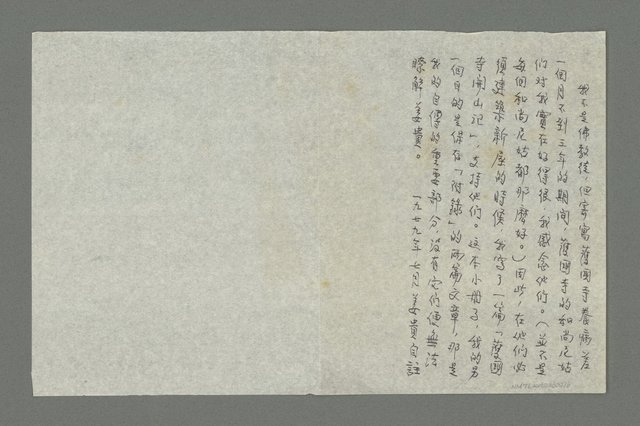 我不是佛教徒，但寄寓護國寺養病差
一個月不到三年的期間，護國寺的和尚尼姑
们对我實在好得很，我感念他们。（並不是
每個和尚尼姑都那麼好。）因此，在他们必
須建築新屋的時候，我寫了一篇「護國
寺開山記」，支持他们。这本小册子，我的另
一個目的是保存「附錄」的两篇文章，那是
我的自傳的重要部分，没有它们便無法
瞭解姜貴。　一九七九年七月姜貴自註